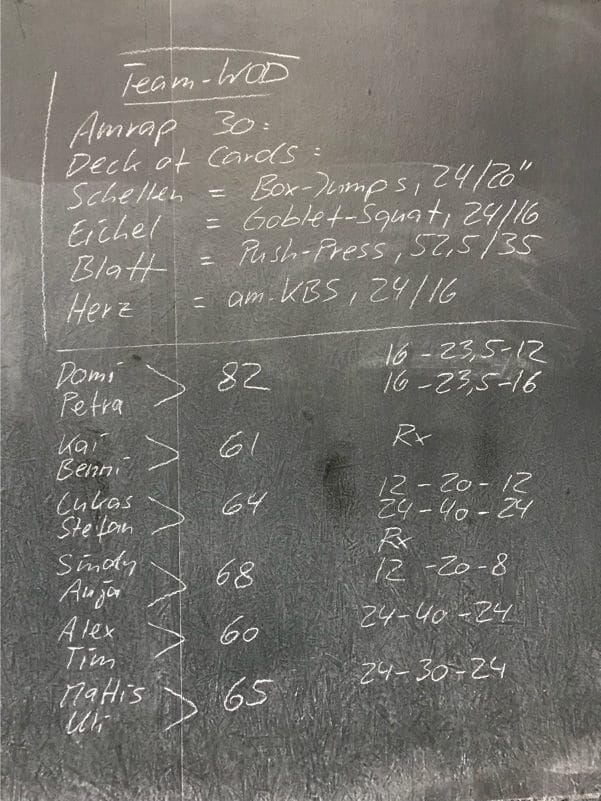 Team-WOD
Amrap 30:
Deck of Cards:
Schellen = Box-Jumps, 24/20"
Eichel = Goblet-Squat, 24/16
Blatt = Push-Press, 52,5/35
Herz = am.KBS, 24/16
Domi
Petra > 82
16-23,5-12
16-23,5-16
Kai
Benni > 61
Rx
Lukas
Stefan > 64
12-20-12
24-40-24
Sindy
Anja > 68
Rx
12-20-8
Alex
Tim > 60
24-40-24
Mattis
Uli > 65
24-30-24